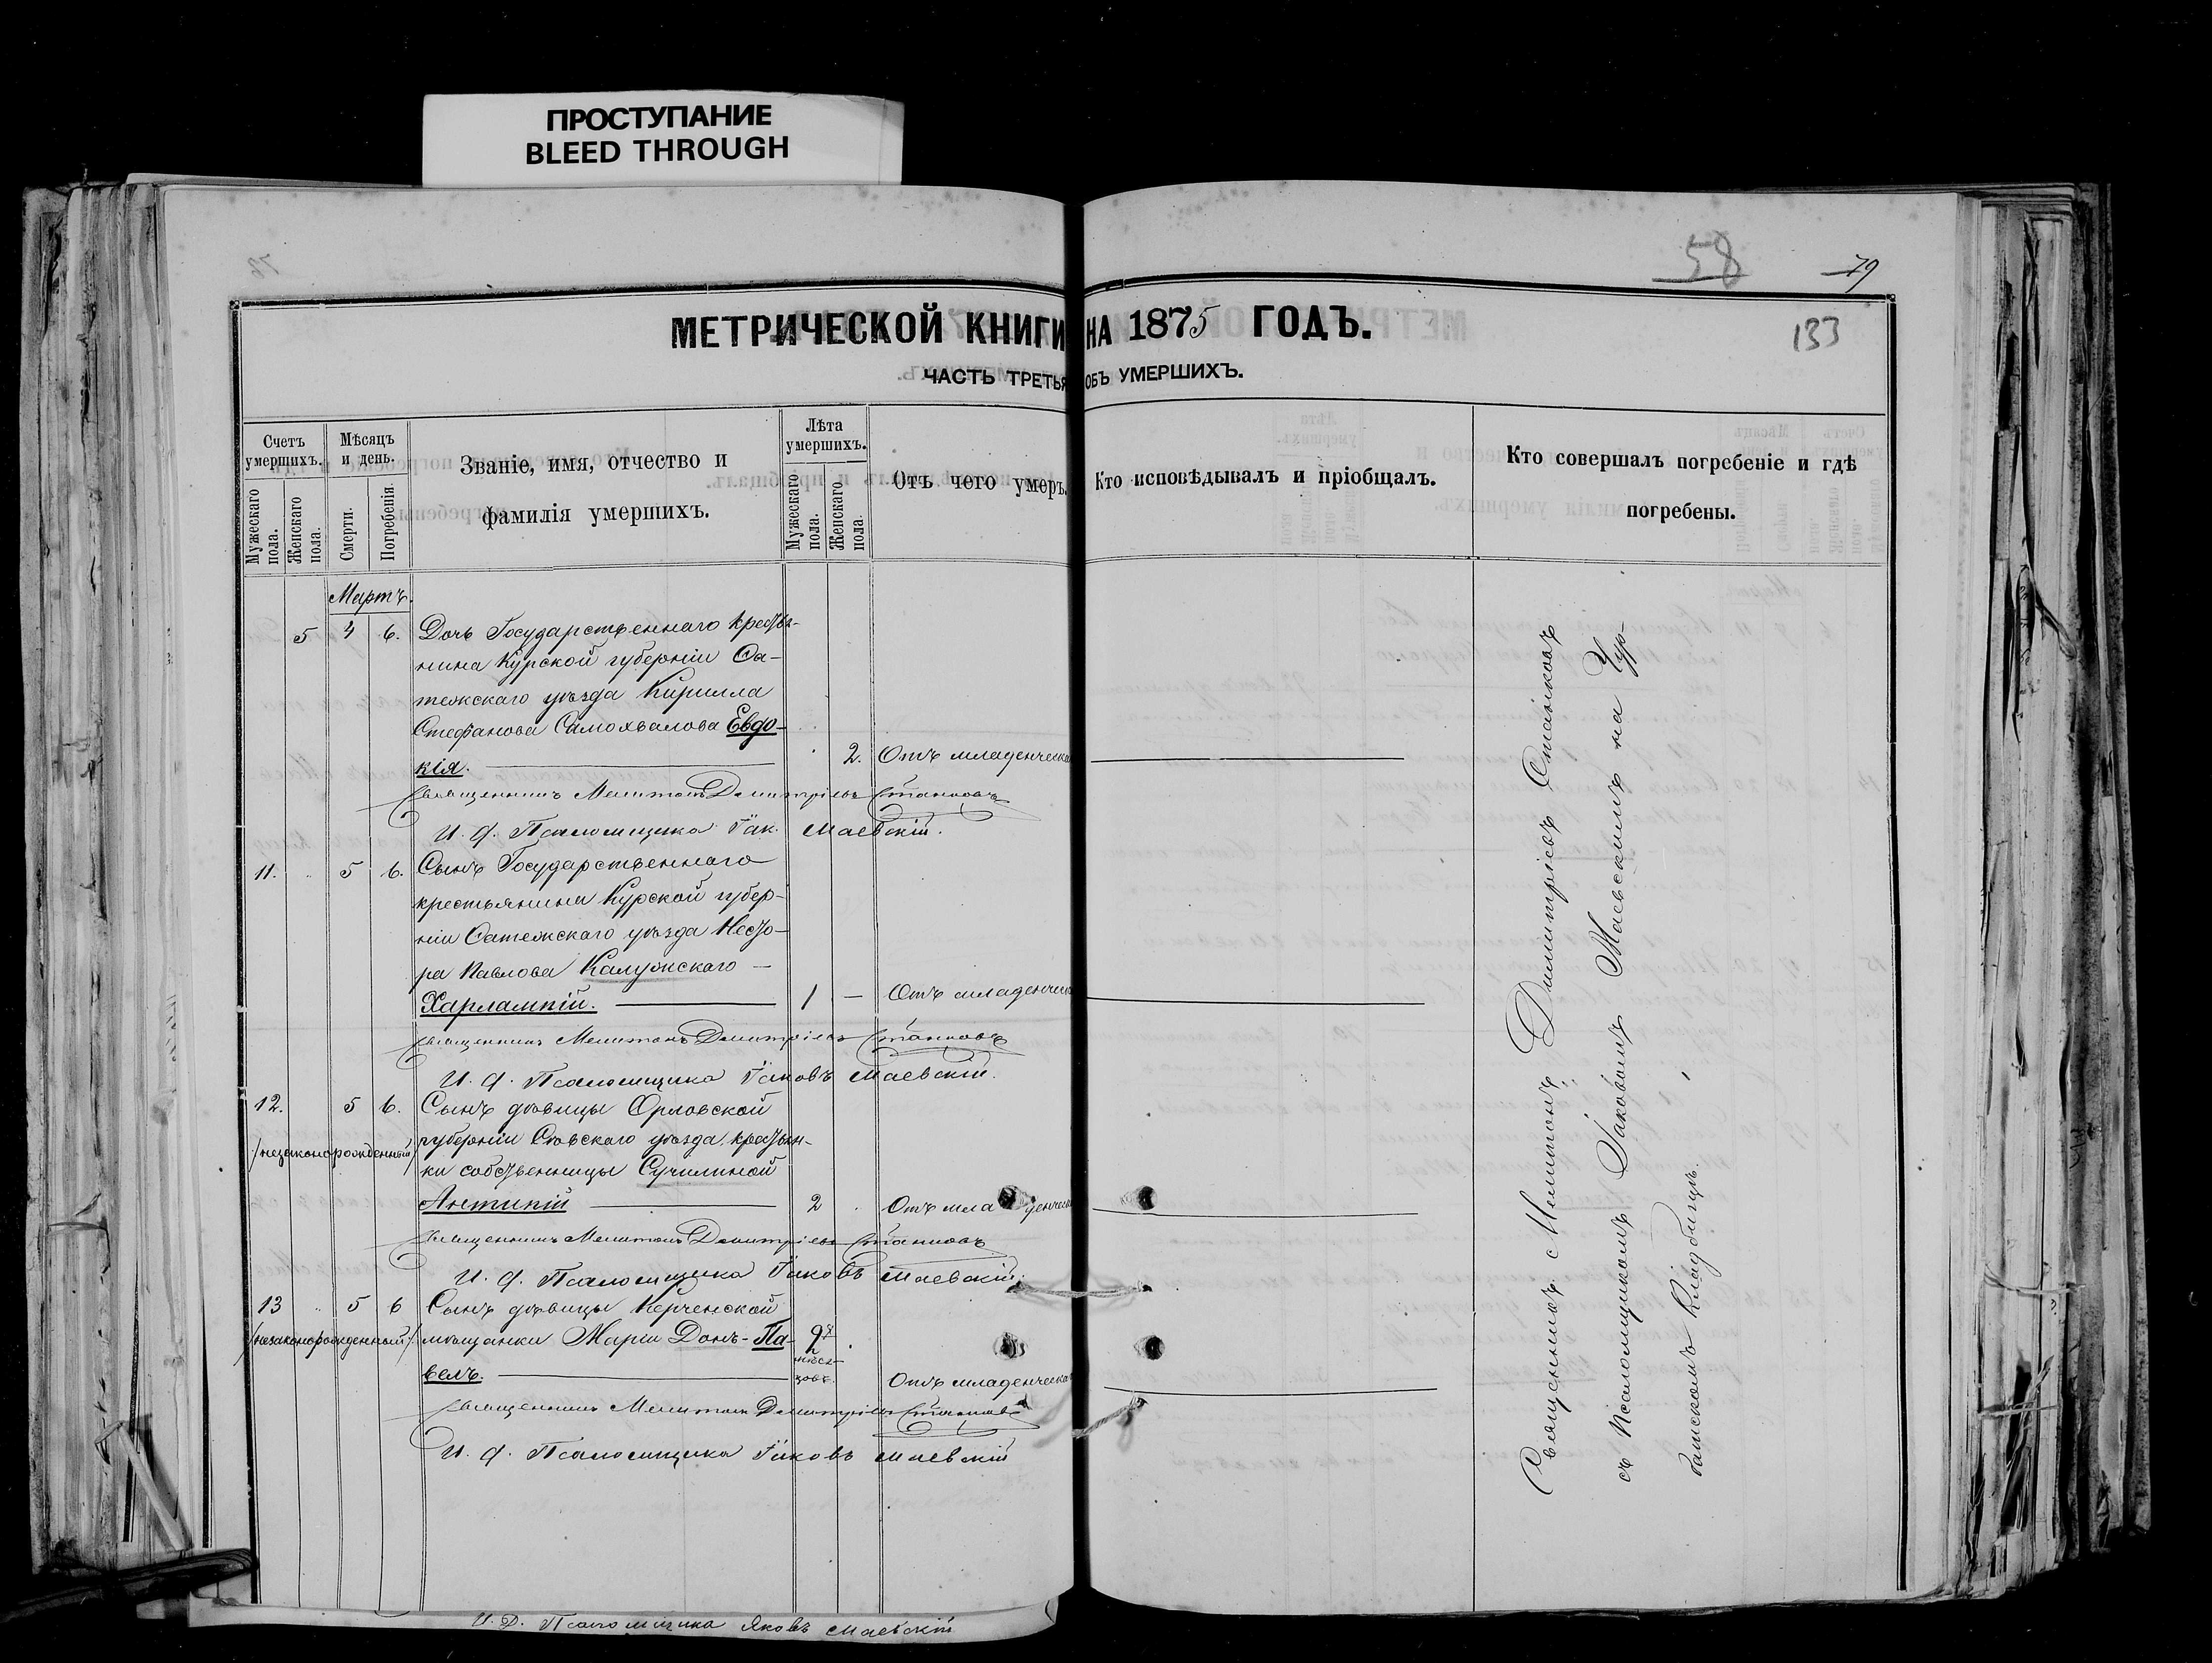 ПРОСТУПАНИЕ
BLEED THROUGH
58
79
МЕТРИЧЕСКОЙ КНИГИ НА 1875 ГОДЪ.
133
ЧАСТЬ ТРЕТЬЯ ОБЪ УМЕРШИХЪ.
Счетъ умершихъ.
Мужескаго пола.
Женскаго пола.
Мѣсяцъ и день.
Смерти.
Погребенія.
Званіе, имя, отчество и
фамилія умершихъ.
Лѣта умершихъ.
Мужескаго пола.
Женскаго пола.
Отъ чего умеръ.
Кто исповѣдывалъ и пріобщалъ.
Кто совершалъ погребеніе и гдѣ
погребены.
Мартъ.
5 4 6. Дочь Государственнаго кресть-
нина Курской губерніи Фа-
тежскаго уѣзда Кирилла
Стефанова Самохвалова Евдо-
кія. 2. Отъ младенческа
Священникъ Мелитонъ Димитріевъ Станковъ
И. д. Псаломщика Іак. Маевскій.
11. 5 6. Сынъ Государственнаго
крестьянина Курской губер-
ніи Фатежскаго уѣзда Несто-
ра Павлова Калужскаго —
Харлампій. 1 — Отъ младенческ
Священникъ Мелитонъ Димитріевъ Станковъ
И. д. Псаломщика Іаковъ Маевскій.
12. 5 6. Сынъ дѣвицы Орловской
/незаконорожденный/ губерніи Сѣвскаго уѣзда крестьян-
ки собственницы Сучилиной
Антипій 2 Отъ младенческ
Священникъ Мелитонъ Димитріевъ Станковъ
И. д. Псаломщика Іаковъ Маевскій.
13 5 6 Сынъ дѣвицы Керченской
/незаконорожденный/ мѣщанки Маріи Донъ-Па- 9 мѣся-
велъ. цовъ. Отъ младенческа
Священникъ Мелитонъ Димитріевъ Станковъ
И. д. Псаломщика Іаковъ Маевскій
Священникъ Мелитонъ Димитріевъ Станковъ
съ Псаломщикомъ Іаковомъ Маевскимъ на Чур-
башскомъ кладбищѣ.
И. Д. Псаломщика Яковъ Маевскій